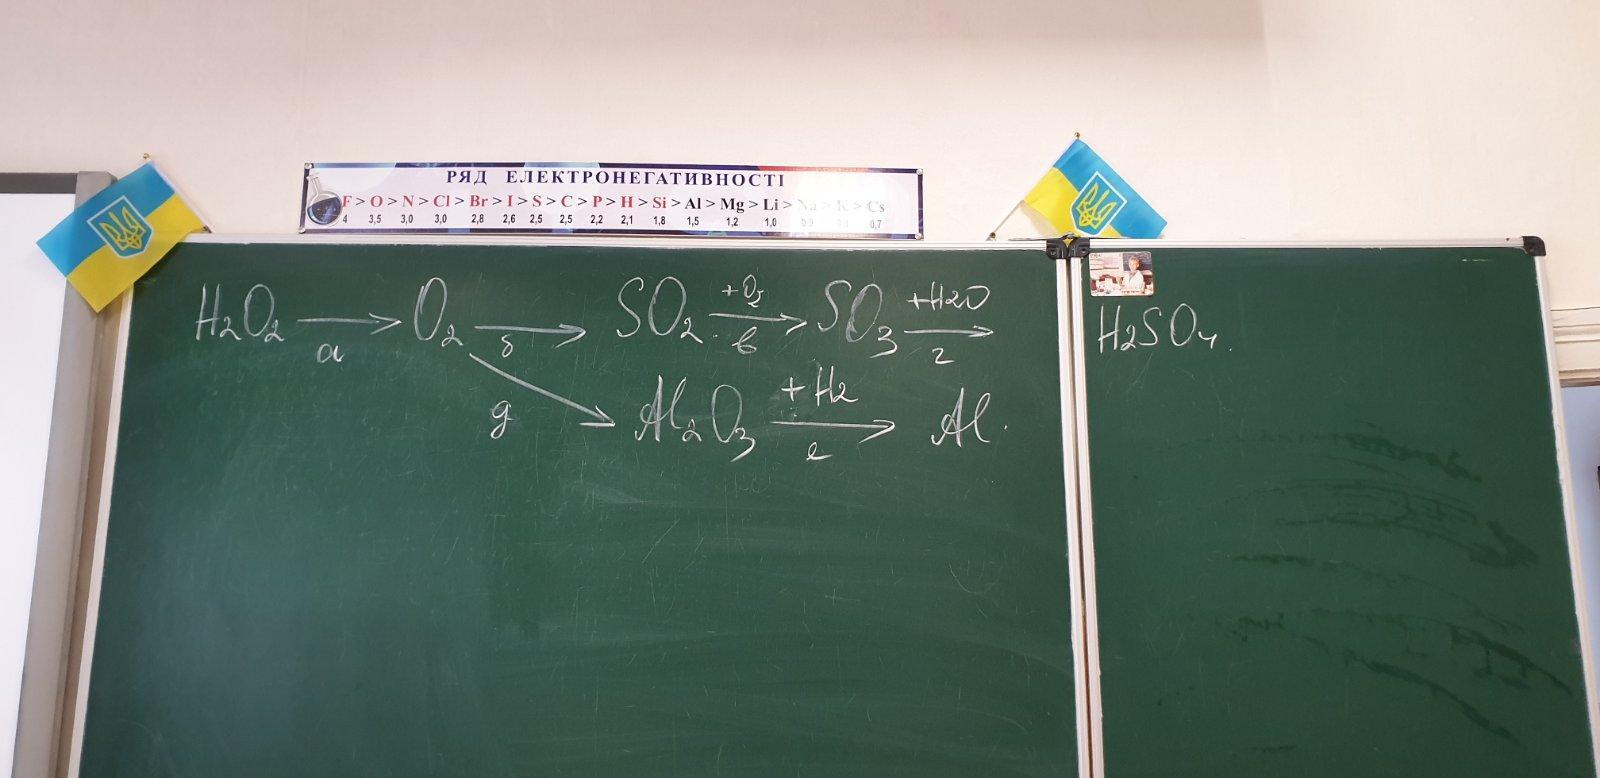 РЯД ЕЛЕКТРОНЕГАТИВНОСТІ
F > O > N > Cl > Br > I > S > C > P > H > Si > Al > Mg > Li > Na > K > Cs
4 3,5 3,0 3,0 2,8 2,6 2,5 2,5 2,2 2,1 1,8 1,5 1,2 1,0 0,9 0,7
+O2 +H2O
H2O2 → O2 → SO2 → SO3 → H2SO4.
а б в г
+H2
д → Al2O3 → Al.
е